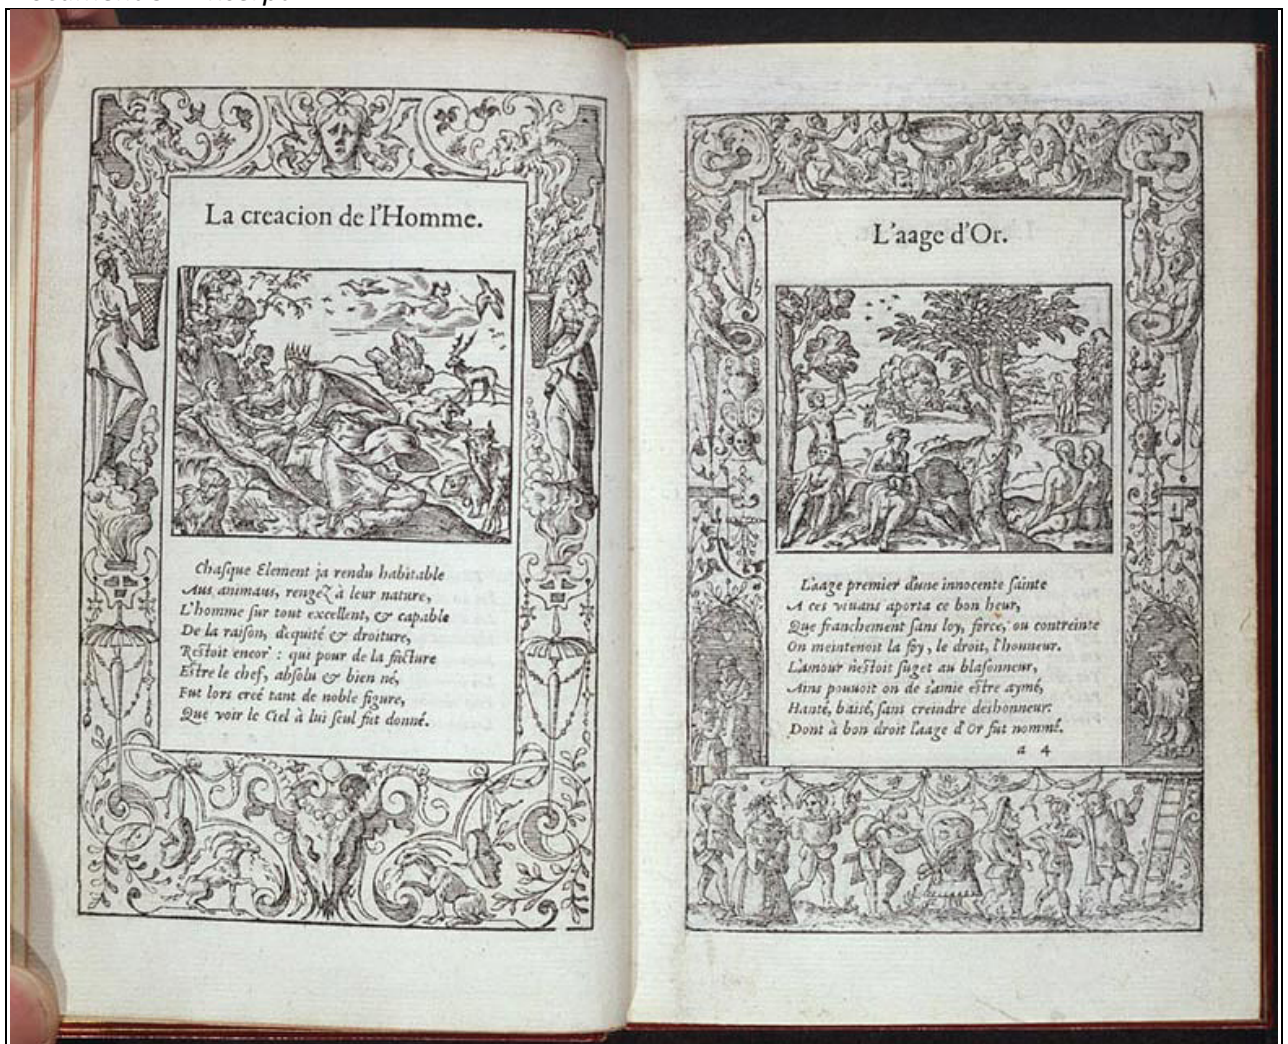 La creacion de l'Homme.
Chasque Element ja rendu habitable
Aus animaus, rengez à leur nature,
L'homme sur tout excellent, & capable
De la raison, d'equité & droiture,
Restoit encor : qui pour de la facture
Estre le chef, absolu & bien né,
Fut lors creé tant de noble figure,
Que voir le Ciel à lui seul fut donné.
L'aage d'Or.
L'aage premier d'une innocente sainte
A ces viuans aporta ce bon heur,
Que franchement sans loy, force, ou contreinte
On meintenoit la foy, le droit, l'honneur.
L'amour n'estoit suget au blasonneur,
Ains pouuoit on de s'amie estre aymé,
Hanté, baisé, sans creindre deshonneur:
Dont à bon droit l'aage d'Or fut nommé.
a 4